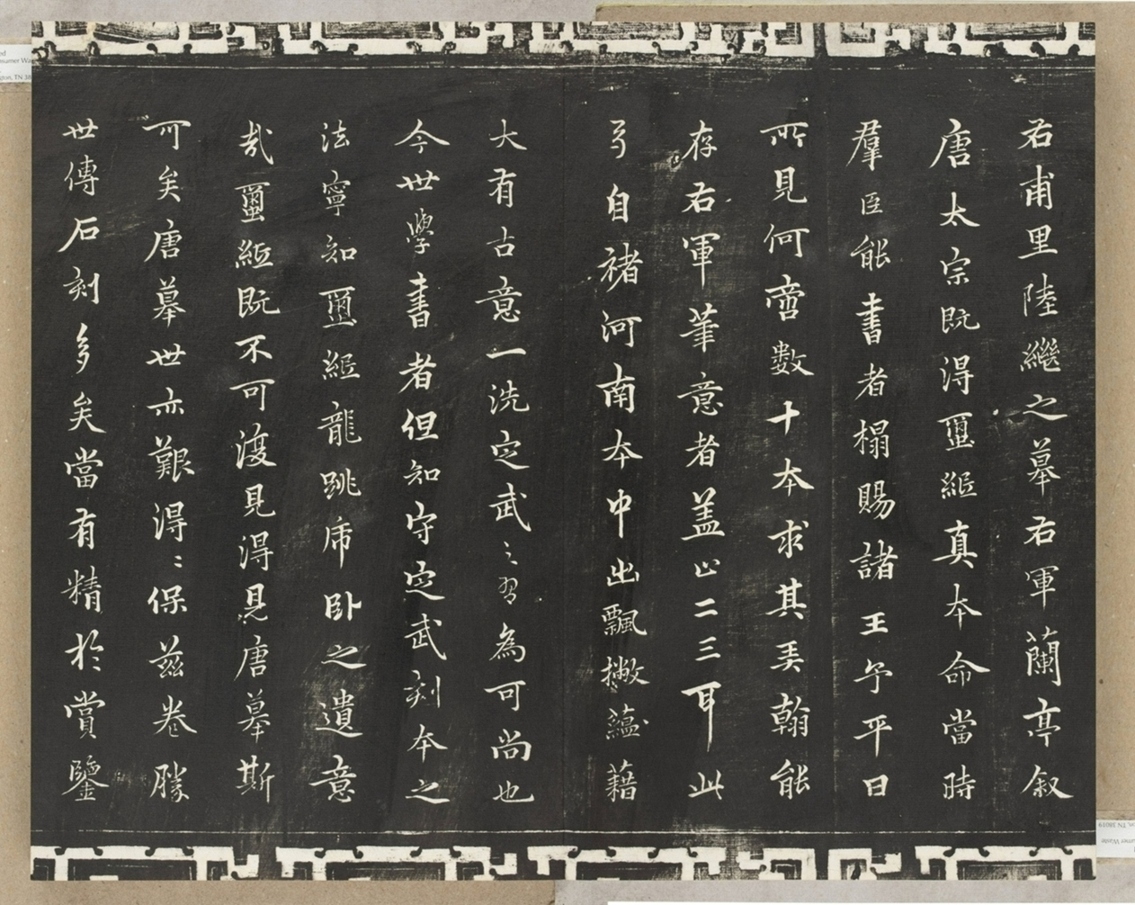 右甫里陸繼之摹右軍蘭亭叙
唐太宗既得繭紙真本命當時
羣臣能書者榻賜諸王予平日
所見何啻數十本求其弄翰能
存右軍筆意者盖止二三耳此
弓自褚河南本中出飄撇蘊藉
大有古意一洗定武之習為可尚也
今世學書者但知守定武刻本之
法寧知繭紙龍跳虎卧之遺意
哉繭紙既不可復見得見唐摹斯
可矣唐摹世亦艱得〻保茲卷勝
世傳石刻多矣當有精於賞鑒